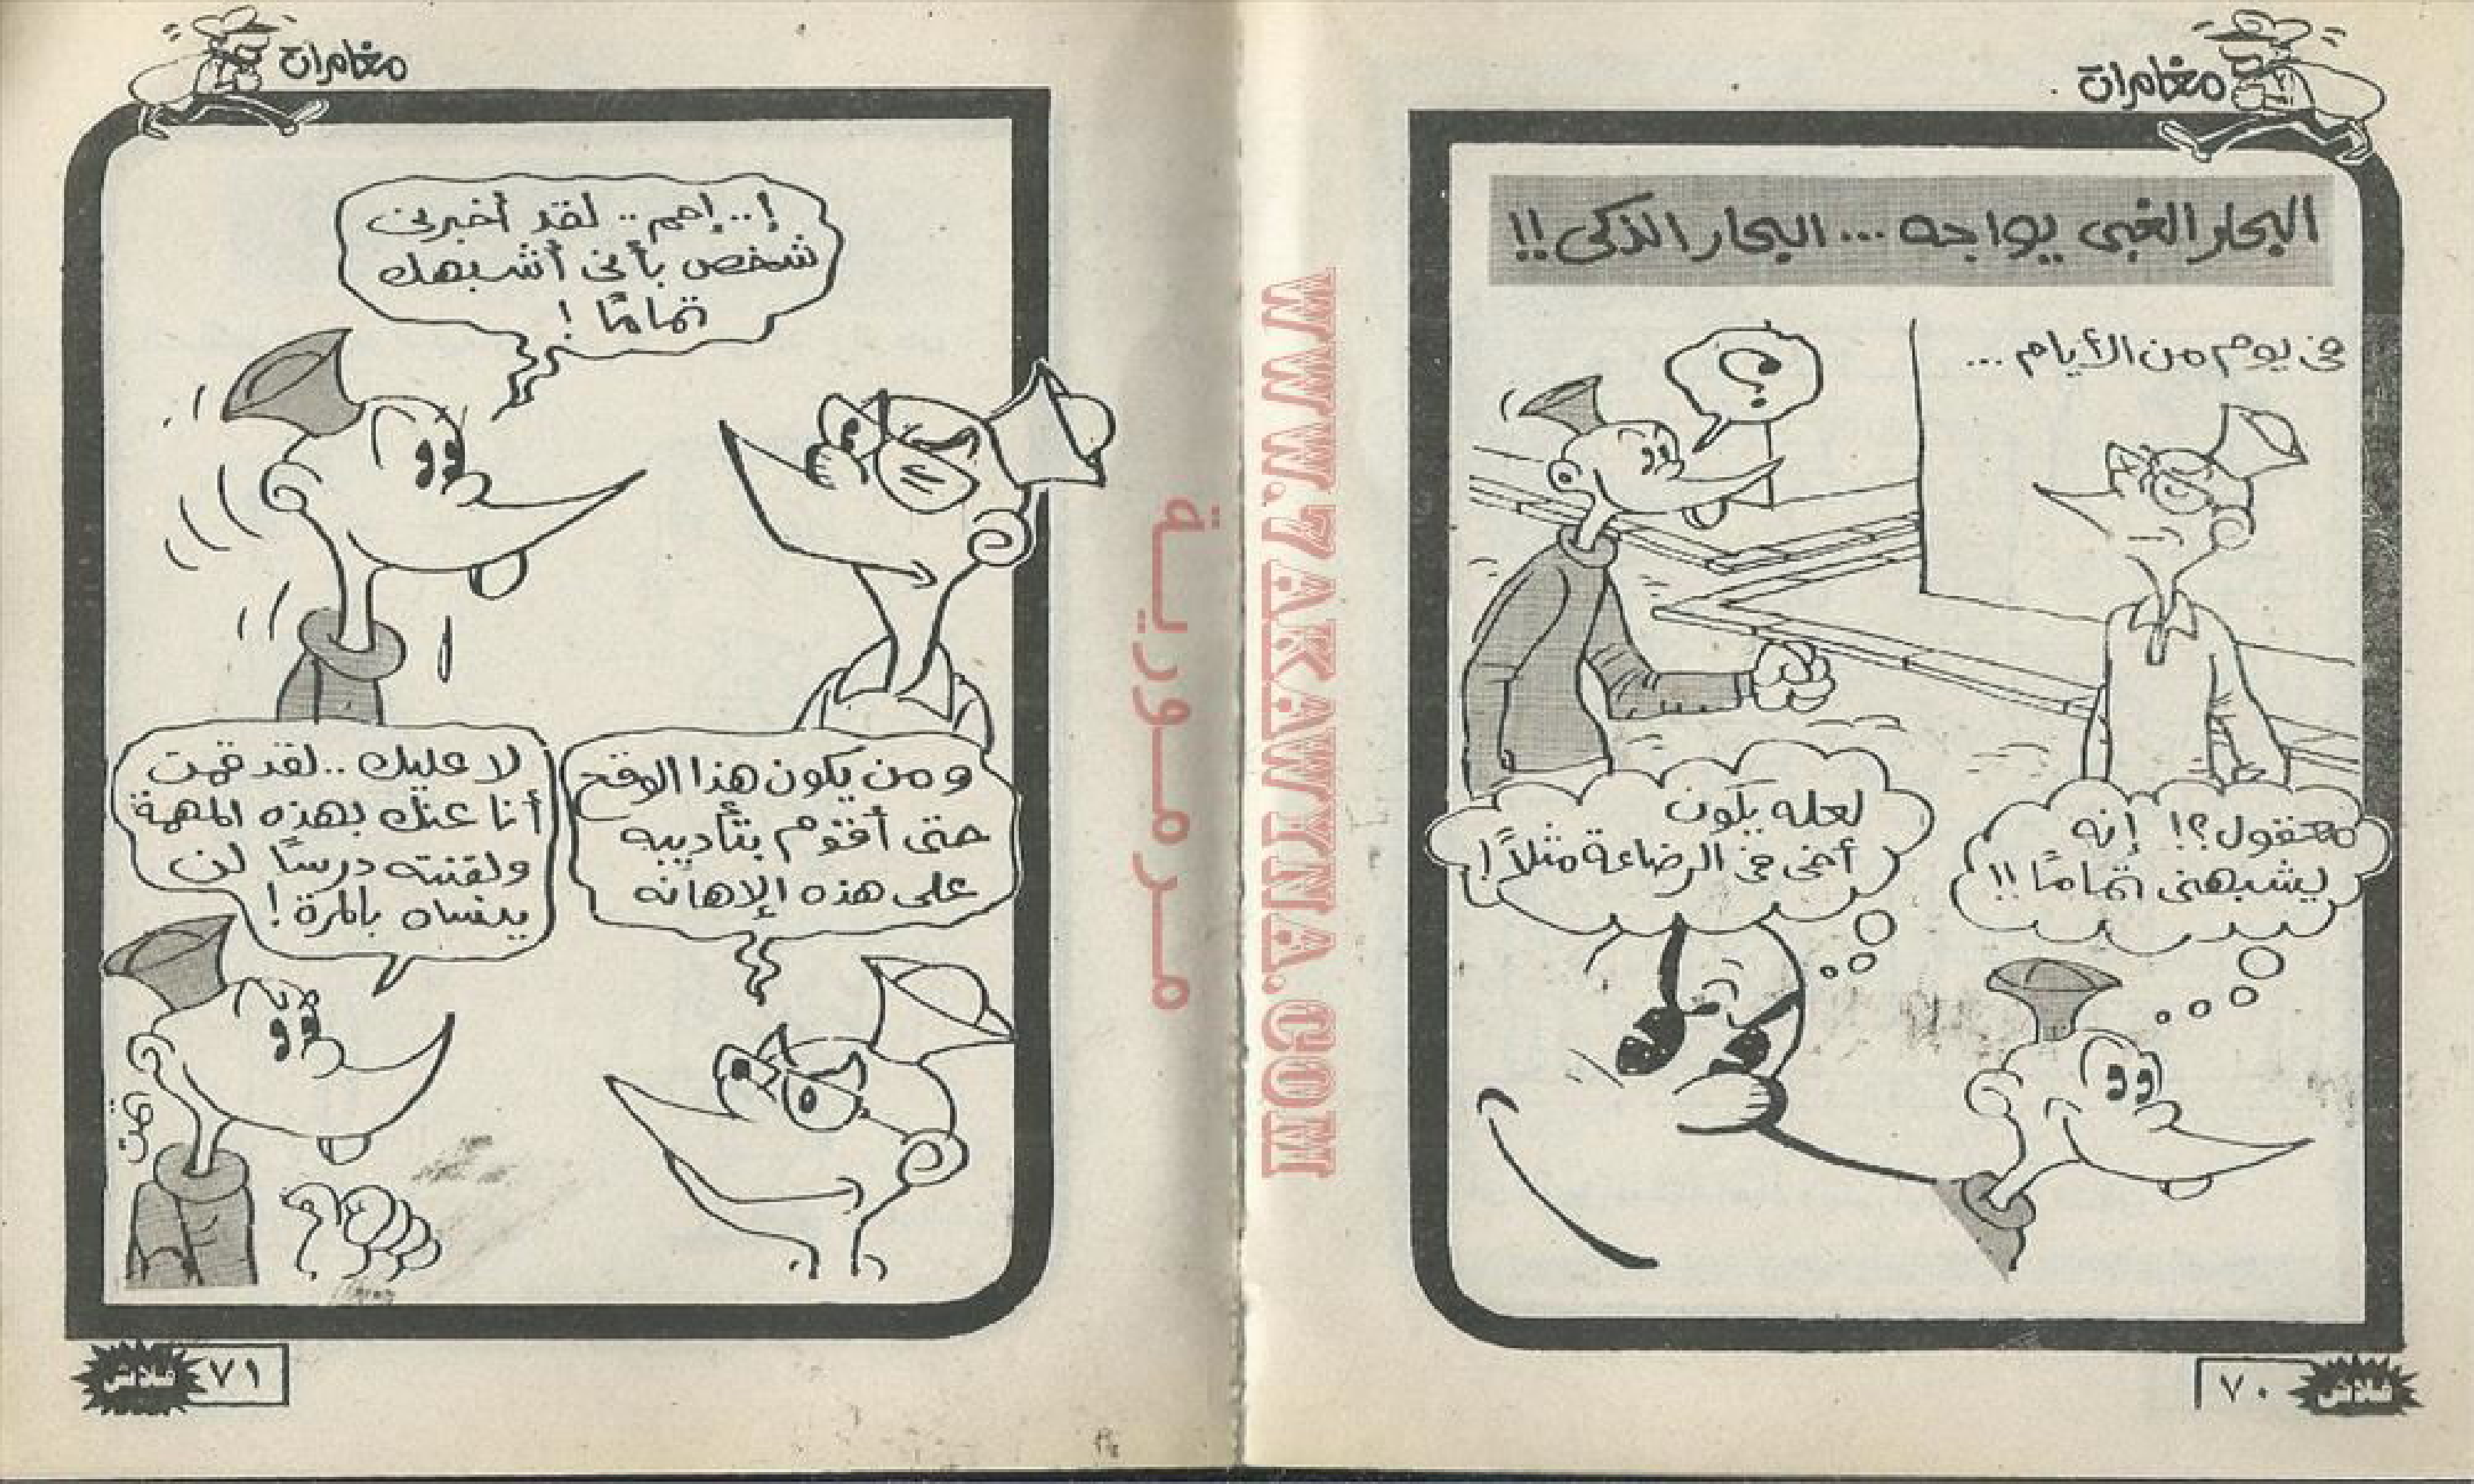 مغامرات
البحار الغبى يواجه ... البحار الذكى !!
فى يوم من الأيام ...
؟
معقول ؟! إنه
يشبهنى تمامًا !!
لعله يكون
أخى فى الرضاعة مثلاً !
٧٠
فلاش
WWW.7AKAWINA.COM
مرمورية
مغامرات
إ .. إحم .. لقد أخبرنى
شخص بأنى أشبهك
تمامًا !
ومن يكون هذا الوقح
حتى أقوم بتأديبه
على هذه الإهانه
لا عليك .. لقد قمت
أنا عنك بهذه المهمة
ولقنته درسًا لن
ينساه بالمرة !
٧١
فلاش